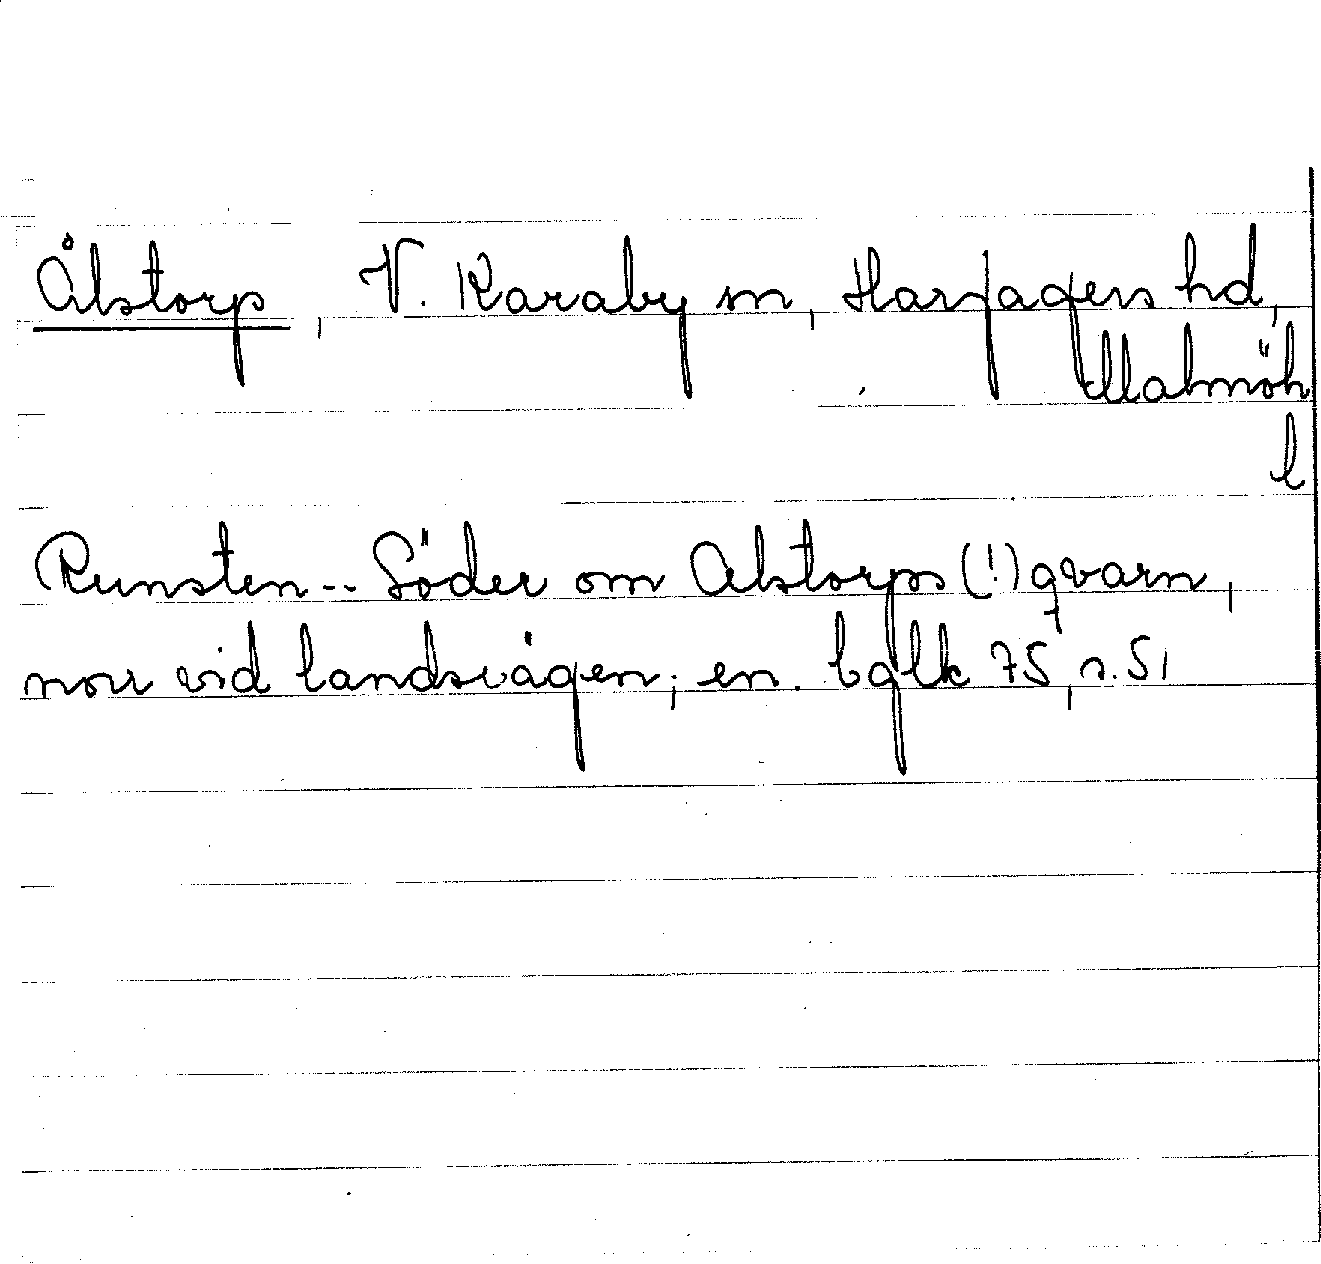 Ålstorp, V. Karaby sn, Harjagers hd,
Malmöh
l
Runsten -- Söder om Alstorps (!) qvarn,
norr vid landsvägen; en. bglk 75, s. 51